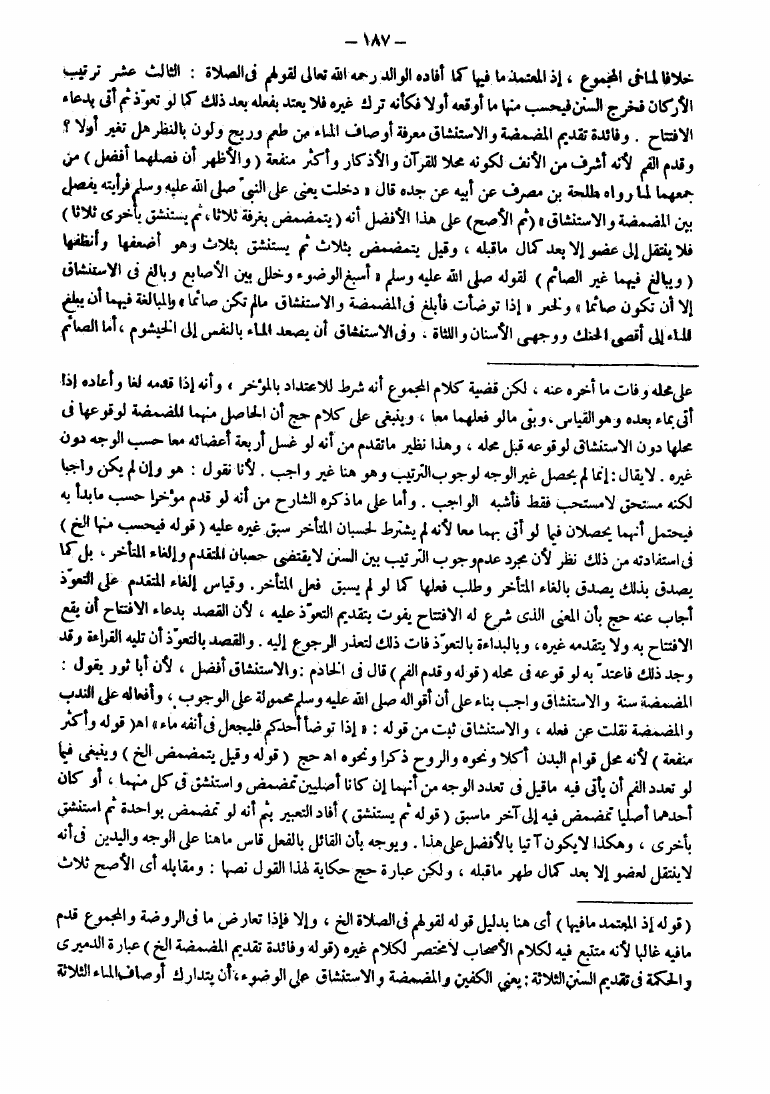 – ١٨٧ –
خلافا لما فى المجموع ، إذ المعتمد ما فيها كما أفاده الوالد رحمه الله تعالى لقولهم فى الصلاة : الثالث عشر ترتيب
الأركان فخرج السنن فيحسب منها ما أوقعه أولا فكأنه ترك غيره فلا يعتد بفعله بعد ذلك كما لو تعوّذ ثم أتى بدعاء
الافتتاح . وفائدة تقديم المضمضة والاستنشاق معرفة أوصاف الماء من طعم وريح ولون بالنظر هل تغير أولا ؟
وقدم الفم لأنه أشرف من الأنف لكونه محلا للقرآن والأذكار وأكثر منفعة ( والأظهر أن فصلهما أفضل ) من
جمعهما لما رواه طلحة بن مصرف عن أبيه عن جده قال « دخلت يعنى على النبىّ صلى الله عليه وسلم فرأيته يفصل
بين المضمضة والاستنشاق » ( ثم الأصح ) على هذا الأفضل أنه ( يتمضمض بغرفة ثلاثا ، ثم يستنشق بأخرى ثلاثا )
فلا ينتقل إلى عضو إلا بعد كمال ماقبله ، وقيل يتمضمض بثلاث ثم يستنشق بثلاث وهو أضعفها وأنظفها
( ويبالغ فيهما غير الصائم ) لقوله صلى الله عليه وسلم « أسبغ الوضوء وخلل بين الأصابع وبالغ فى الاستنشاق
إلا أن تكون صائما » ولخبر « إذا توضأت فأبلغ فى المضمضة والاستنشاق مالم تكن صائما » والمبالغة فيهما أن يبلغ
الماء إلى أقصى الحنك ووجهى الأسنان واللثاة ، وفى الاستنشاق أن يصعد الماء بالنفس إلى الخيشوم ، أما الصائم
على محله وفات ما أخره عنه ، لكن قضية كلام المجموع أنه شرط للاعتداد بالمؤخر ، وأنه إذا قدمه لغا وأعاده إذا
أتى بماء بعده وهو القياس ، وبقى مالو فعلهما معا ، وينبغى على كلام حج أن الحاصل منهما المضمضة لوقوعها فى
محلها دون الاستنشاق لوقوعه قبل محله ، وهذا نظير ماتقدم من أنه لو غسل أربعة أعضائه معا حسب الوجه دون
غيره . لايقال : إنما لم يحصل غير الوجه لوجوب الترتيب وهو هنا غير واجب . لأنا نقول : هو وإن لم يكن واجبا
لكنه مستحق لا مستحب فقط فأشبه الواجب . وأما على ماذكره الشارح من أنه لو قدم مؤخرا حسب مابدأ به
فيحتمل أنهما يحصلان فيما لو أتى بهما معا لأنه لم يشترط لحسبان المتأخر سبق غيره عليه ( قوله فيحسب منها الخ )
فى استفادته من ذلك نظر لأن مجرد عدم وجوب الترتيب بين السنن لايقتضى حسبان المتقدم وإلغاء المتأخر ، بل كما
يصدق بذلك يصدق بالغاء المتأخر وطلب فعلها كما لو لم يسبق فعل المتأخر. وقياس إلغاء المتقدم على التعوّذ
أجاب عنه حج بأن المعنى الذى شرع له الافتتاح يفوت بتقديم التعوّذ عليه ، لأن القصد بدعاء الافتتاح أن يقع
الافتتاح به ولا يتقدمه غيره ، وبالبداءة بالتعوّذ فات ذلك لتعذر الرجوع إليه . والقصد بالتعوّذ أن تليه القراءة وقد
وجد ذلك فاعتدّ به لوقوعه فى محله ( قوله وقدم الفم ) قال فى الخادم : والاستنشاق أفضل ، لأن أبا ثور يقول :
المضمضة سنة والاستنشاق واجب بناء على أن أقواله صلى الله عليه وسلم محمولة على الوجوب ، وأفعاله على الندب
والمضمضة نقلت عن فعله ، والاستنشاق ثبت من قوله : « إذا توضأ أحدكم فليجعل فى أنفه ماء » اه ( قوله وأكثر
منفعة ) لأنه محل قوام البدن أكلا ونحوه والروح ذكرا ونحوه اه حج ( قوله وقيل يتمضمض الخ ) وينبغى فيما
لو تعدد الفم أن يأتى فيه ماقيل فى تعدد الوجه من أنهما إن كانا أصليين تمضمض واستنشق فى كل منهما ، أو كان
أحدهما أصليا تمضمض فيه إلى آخر ماسبق ( قوله ثم يستنشق ) أفاد التعبير بثم أنه لو تمضمض بواحدة ثم استنشق
بأخرى ، وهكذا لايكون آتيا بالأفضل على هذا . ويوجه بأن القائل بالفعل قاس ماهنا على الوجه واليدين فى أنه
لاينتقل لعضو إلا بعد كمال طهر ماقبله ، ولكن عبارة حج حكاية لهذا القول نصها : ومقابله أى الأصح ثلاث
( قوله إذ المعتمد مافيها ) أى هنا بدليل قوله لقولهم فى الصلاة الخ ، وإلا فإذا تعارض ما فى الروضة والمجموع قدم
مافيه غالبا لأنه متتبع فيه لكلام الأصحاب لا مختصر لكلام غيره ( قوله وفائدة تقديم المضمضة الخ ) عبارة الدميرى
والحكمة فى تقديم السنن الثلاثة : يعني الكفين والمضمضة والاستنشاق على الوضوء ، أن يتدارك أوصاف الماء الثلاثة